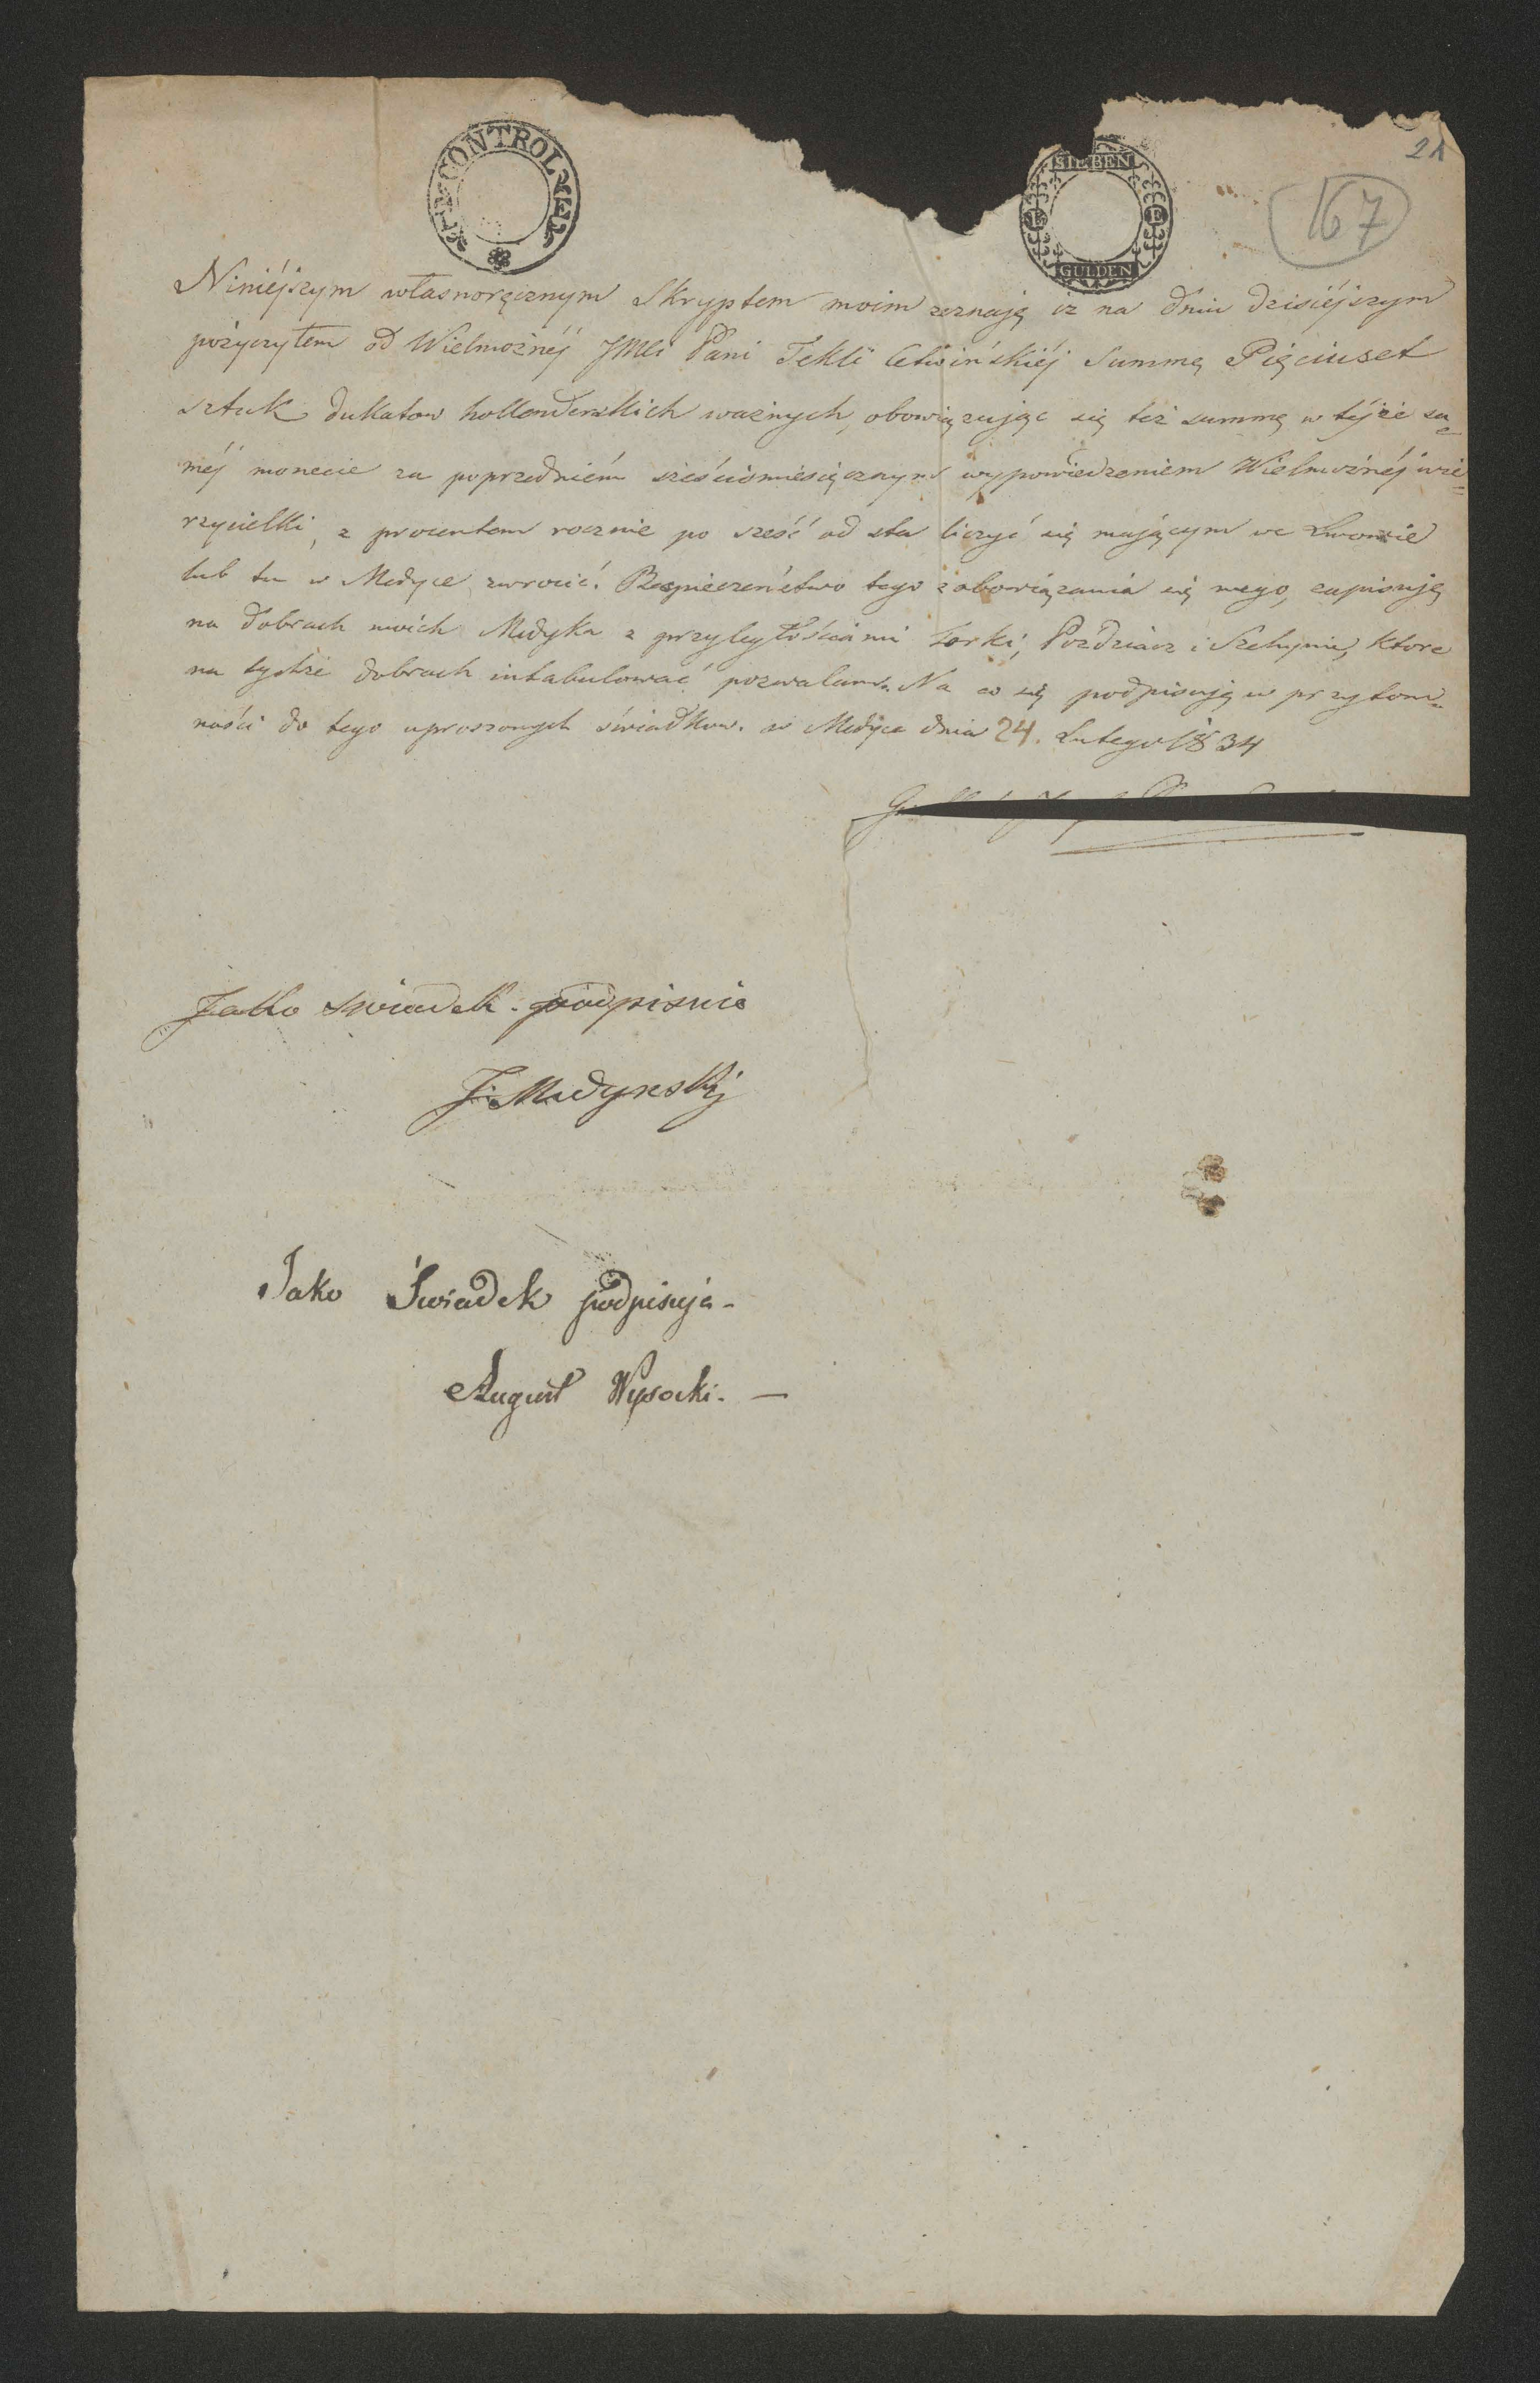 ST. CONTROL MEL
SIEBEN
GULDEN
21
167
Niniéjszym własnoręcznym Skryptem moim zeznaję iz na dniu dzisiéjszym
pożyczyłem od Wielmożnéj JMCi Pani Tekli Summę Pięciuset
sztuk dukatow hollenderskich ważnych, obowiązując się też summę w téjże sa=
méj monecie za poprzedniém sześciomięsięcznym wypowiedzeniem Wielmożnéj wie=
rzycielki, z procentem rocznie po sześć od sta liczyć się mającym we Lwowie
lub tu w Medyce zwrocić. Bezpieczeństwo tego zobowiązania się mego, zapisuję
na dobrach moich Medyka z przyległościami Torki, Pozdziacz i Szechynie, ktore
na tychże dobrach intabulować pozwalam. Na co się podpisuję w przytom=
ności do tego uproszonych świadkow. w Medyce dnia 24. Lutego 1834
Jako swiadek podpisuie
J. Medynski
Jako Świadek podpisuję -
August Wysocki. —